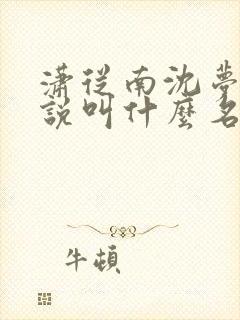 瀟從南沈夢
說叫什麼名
牛頓